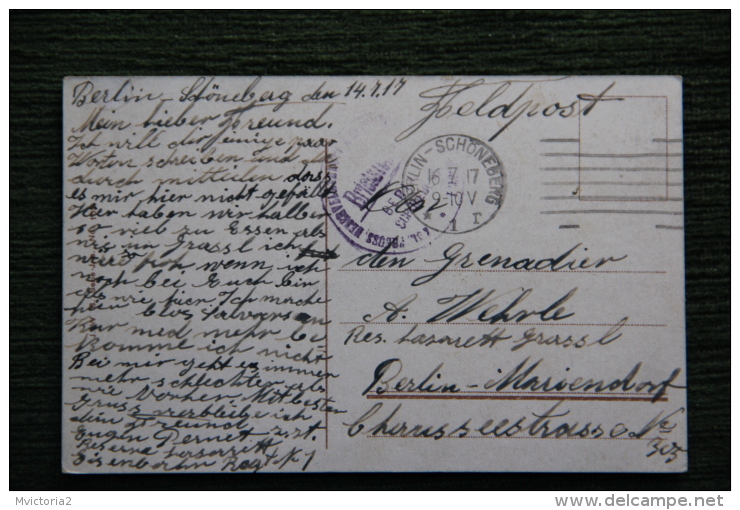 Berlin Schöneberg den 14.7.17
Feldpost
Mein lieber Freund.
Ich will dir einige paar
Worten schreiben und
durch mitteilen dass
es mir hier nicht gefällt
Hier haben wir halben
so viel zu Essen als
wie im Grassl ich
wäre froh wenn ich
noch bei Euch bin
als wie hier. Ich mache
hier blos
Kur med mehr be
komme ich nicht
Bei mir geht es immer
mehr schlechter als
wie Vorher. Mit besten
Gruss verbleibe ich
dein Freund
Eugen Pernet z.zt.
Reserve Lazarett
Eisenbahn Regt N 1
BERLIN-SCHÖNEBERG
16 17
9-10 V
* 1 r
den Grenadier
A. Wehrle
Res. Lazarett Grassl
Berlin-Mariendorf
Chausseestrasse No
305
Mvictoria2
delcampe.net